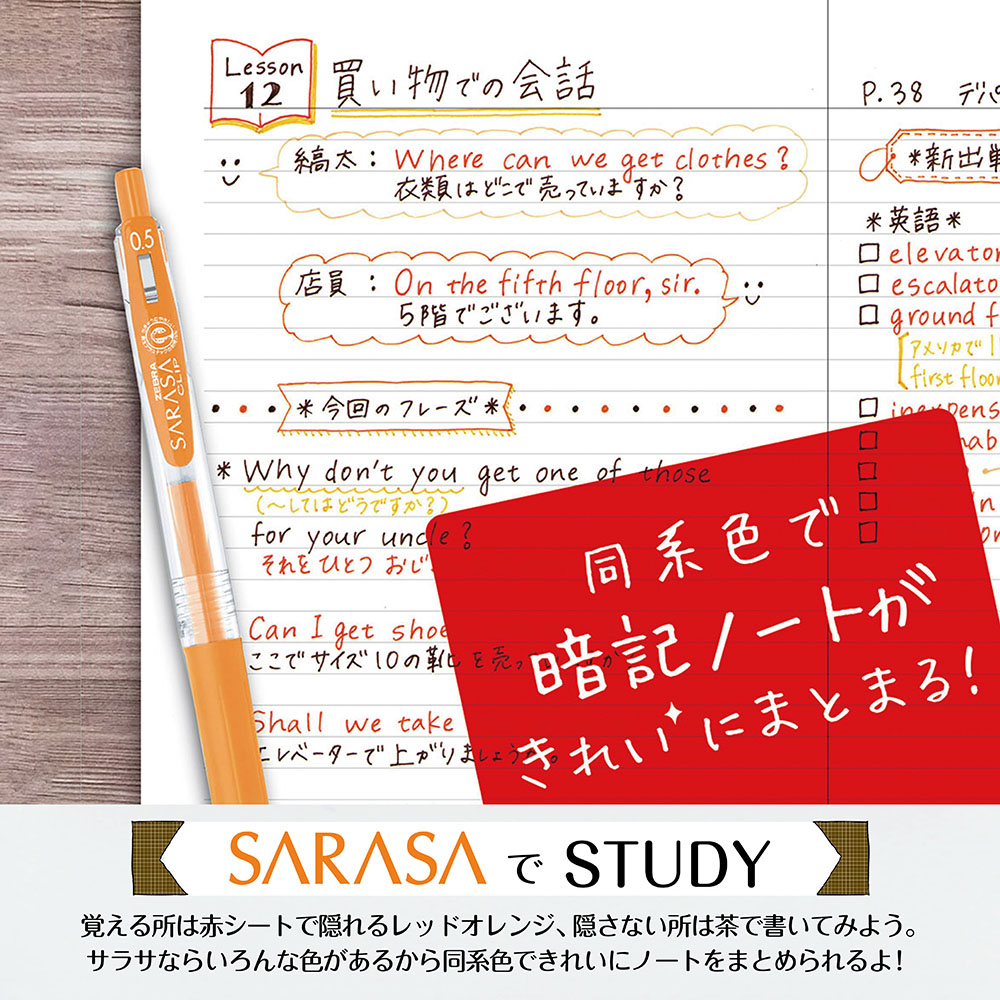 Lesson
12
買い物での会話
縞太：Where can we get clothes?
衣類はどこで売っていますか?
店員：On the fifth floor, sir.
5階でございます。
*今回のフレーズ*
*Why don't you get one of those
(〜してはどうですか?)
for your uncle?
それをひとつ おじ
Can I get shoe
ここでサイズ10の靴を売っ
Shall we take
エレベーターで上がりましょうか。
P.38 デパ
*新出単
*英語*
□elevator
□escalato
□ground f
[アメリカで1
first floor
□inexpens
0.5
ZEBRA
SARASA
CLIP
同系色で
暗記ノートが
きれいにまとまる!
SARASAでSTUDY
覚える所は赤シートで隠れるレッドオレンジ、隠さない所は茶で書いてみよう。
サラサならいろんな色があるから同系色できれいにノートをまとめられるよ!